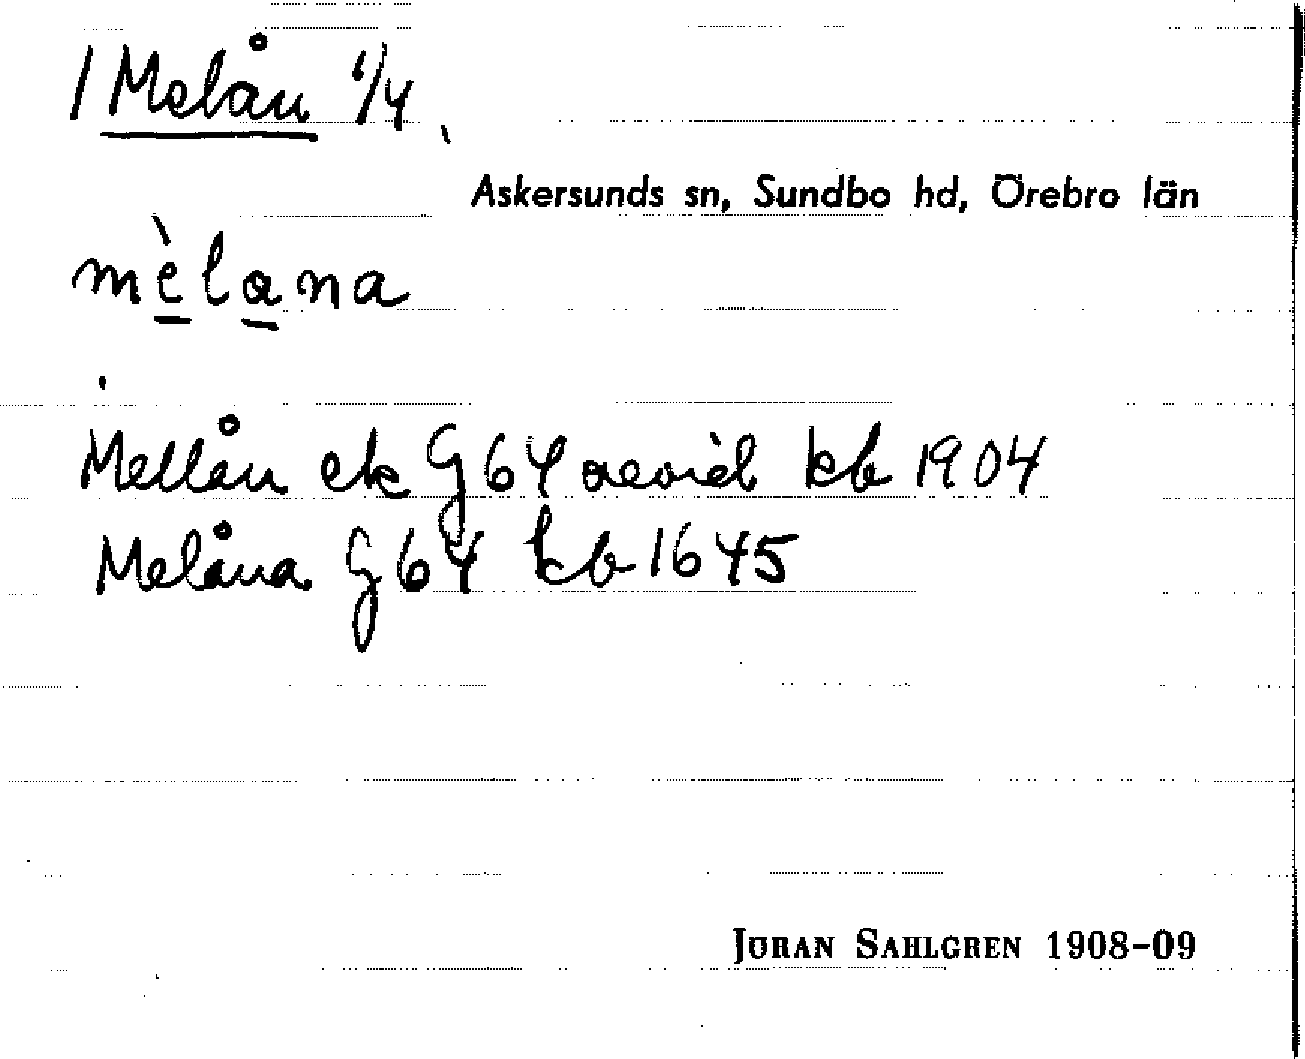 1 Melån 1/4
Askersunds sn, Sundbo hd, Örebro län
mèlana
Mellån ek G 64 revid kb 1904
Melåna G 64 kb 1645
JÖRAN SAHLGREN 1908-09